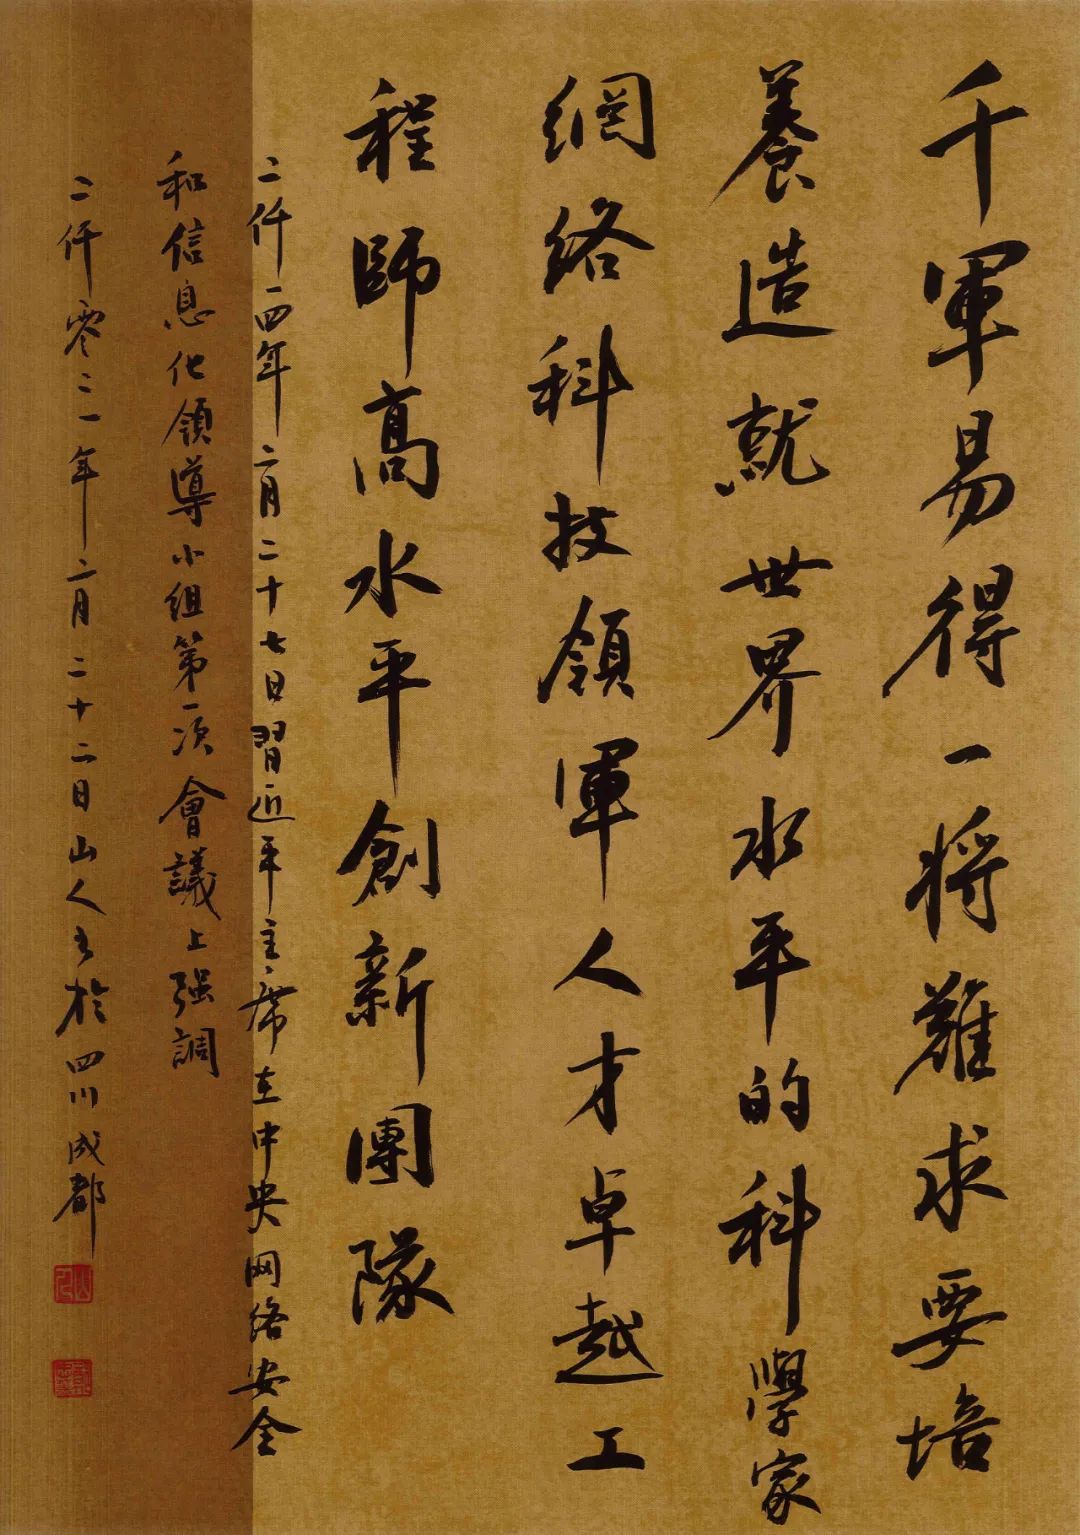 千軍易得一将難求要培
養造就世界水平的科學家
網络科技領軍人才卓越工
程師高水平創新團隊
二仟一四年二月二十七日習近平主席在中央网络安全
和信息化领導小组第一次會議上强調
二仟零二一年二月二十二日山人书於四川成都